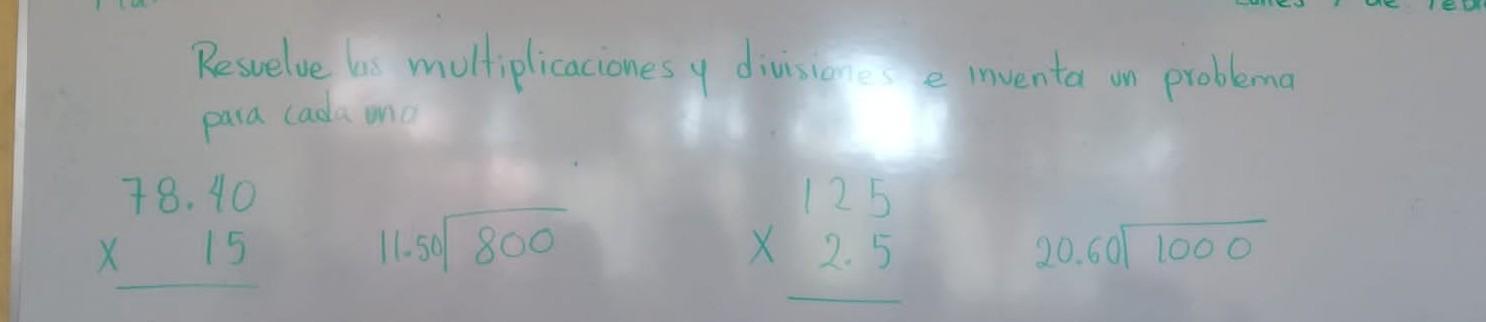 Resuelve las multiplicaciones y divisiones e inventa un problema
para cada una
78.40
x 15
11.50 800
125
x 2.5
20.60 1000